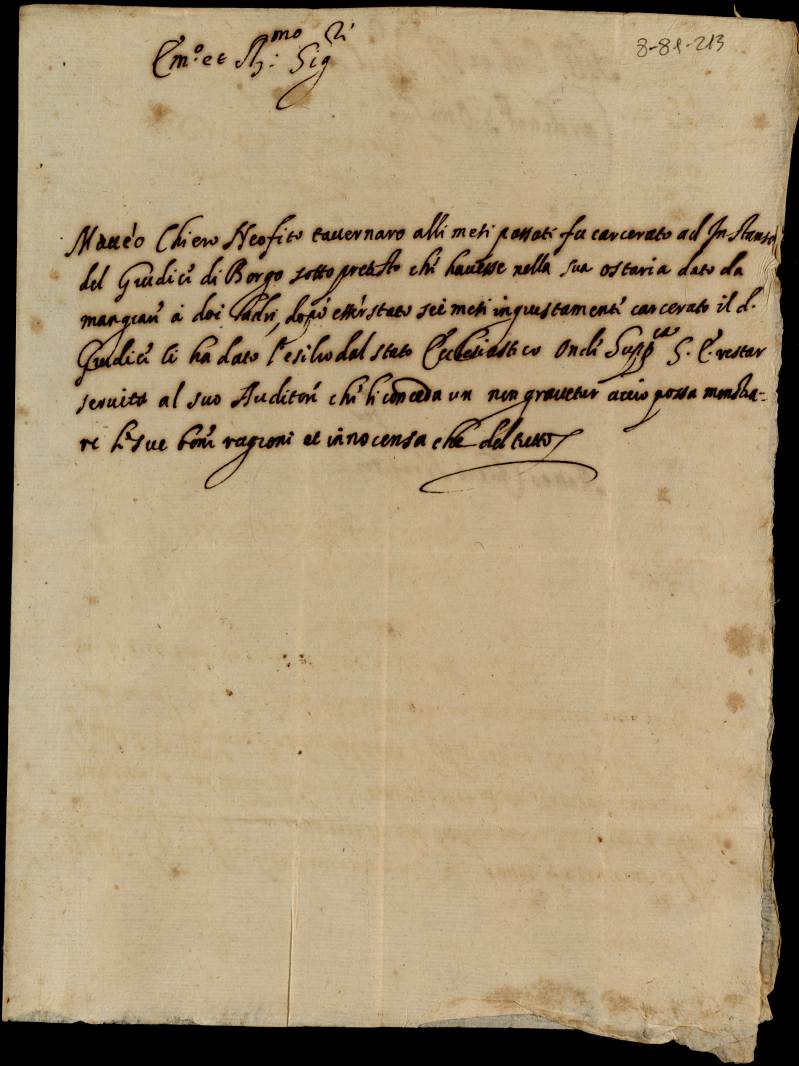 8-81-213
Em.o et R.mo Sig.r
Matteo Chiero Neofito tavernaro alli mesi passati fu carcerato ad Instanza
del Giudice di Borgo sotto pretesto che havesse nella sua ostaria dato da
mangiare a doi ladri, dopo esser stato sei mesi ingiustamente carcerato il d.
Giudice li ha dato l'esilio dal stato Ecclesiastico onde Supp.ca S. E. restar
servita al suo Auditore che li conceda un non gravetur accio possa monstra-
re le sue bone ragioni et innocensa che del tutto